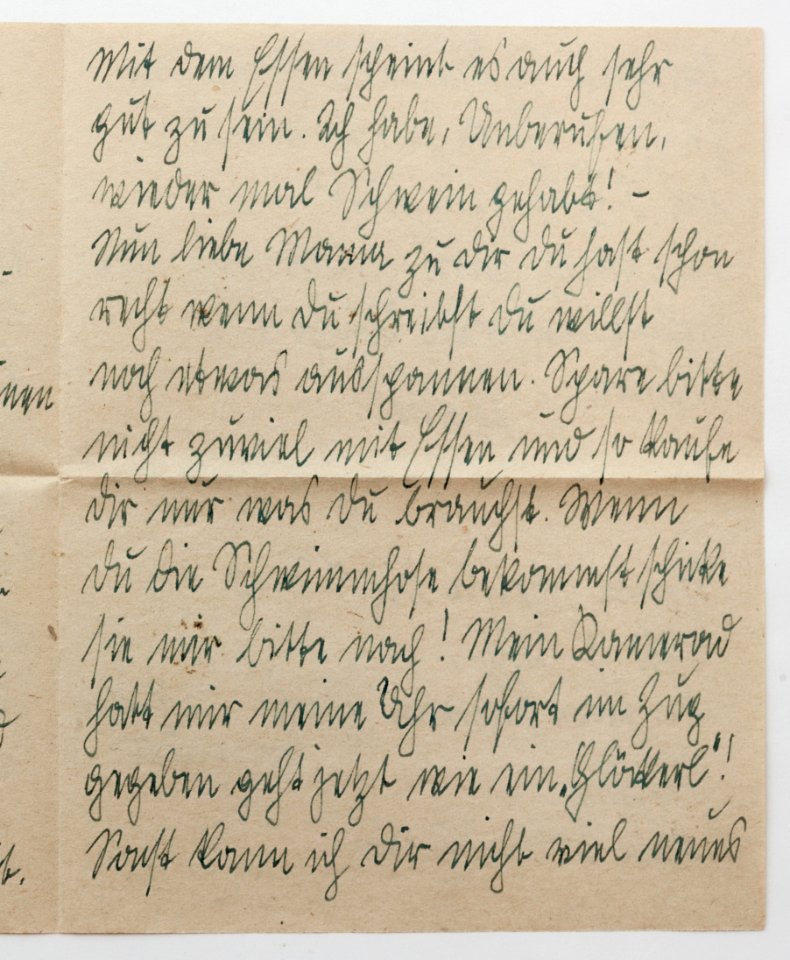 Mit dem Essen scheint es auch sehr
gut zu sein. Ich habe, Unberufen,
wieder mal Schwein gehabt! –
Nun liebe Mama zu dir du hast schon
recht wenn du schreibst du willst
noch etwas ausspannen. Spare bitte
nen
nicht zuviel mit Essen und so kaufe
dir nur was du brauchst. Wenn
du die Schwimmhose bekommst schicke
sie mir bitte nach! Mein Kamerad
hatt mir meine Uhr sofort im Zug
gegeben geht jetzt wie ein „Glökerl"!
Sonst kann ich dir nicht viel neues